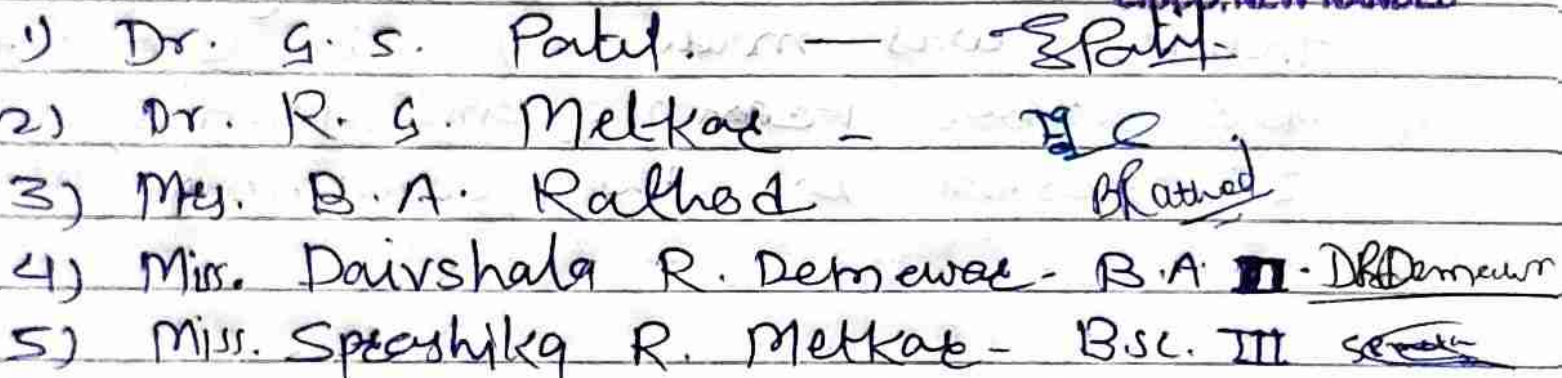 1) Dr. G. S. Patil. — GPatil
2) Dr. R. G. Metkar -
3) Mrs. B. A. Rathod BRathod
4) Miss. Daivshala R. Demewar - B.A II - DRDemewar
5) Miss. Sprashika R. Metkar - B.sc. III